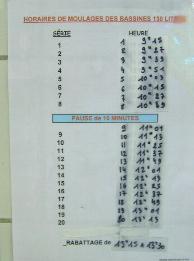 HORAIRES DE MOULAGES DES BASSINES 130 LIT
SÉRIE HEURE
1 1 9H15
2 2 9H27
3 3 9H39
4 4 9H51
5 5 10H03
6 6 10H15
7 7 10H27
8 8 10H39
PAUSE de 10 MINUTES
9 9 11H01
10 10 11H13
11 11 11H25
12 12 11H37
13 13 11H49
14 14 12H01
15 15 12H13
16 16 12H25
17 17 12H37
18 18 12H49
19 19 13H01
20 20 13H13
RABATTAGE de 13H15 à 13H30